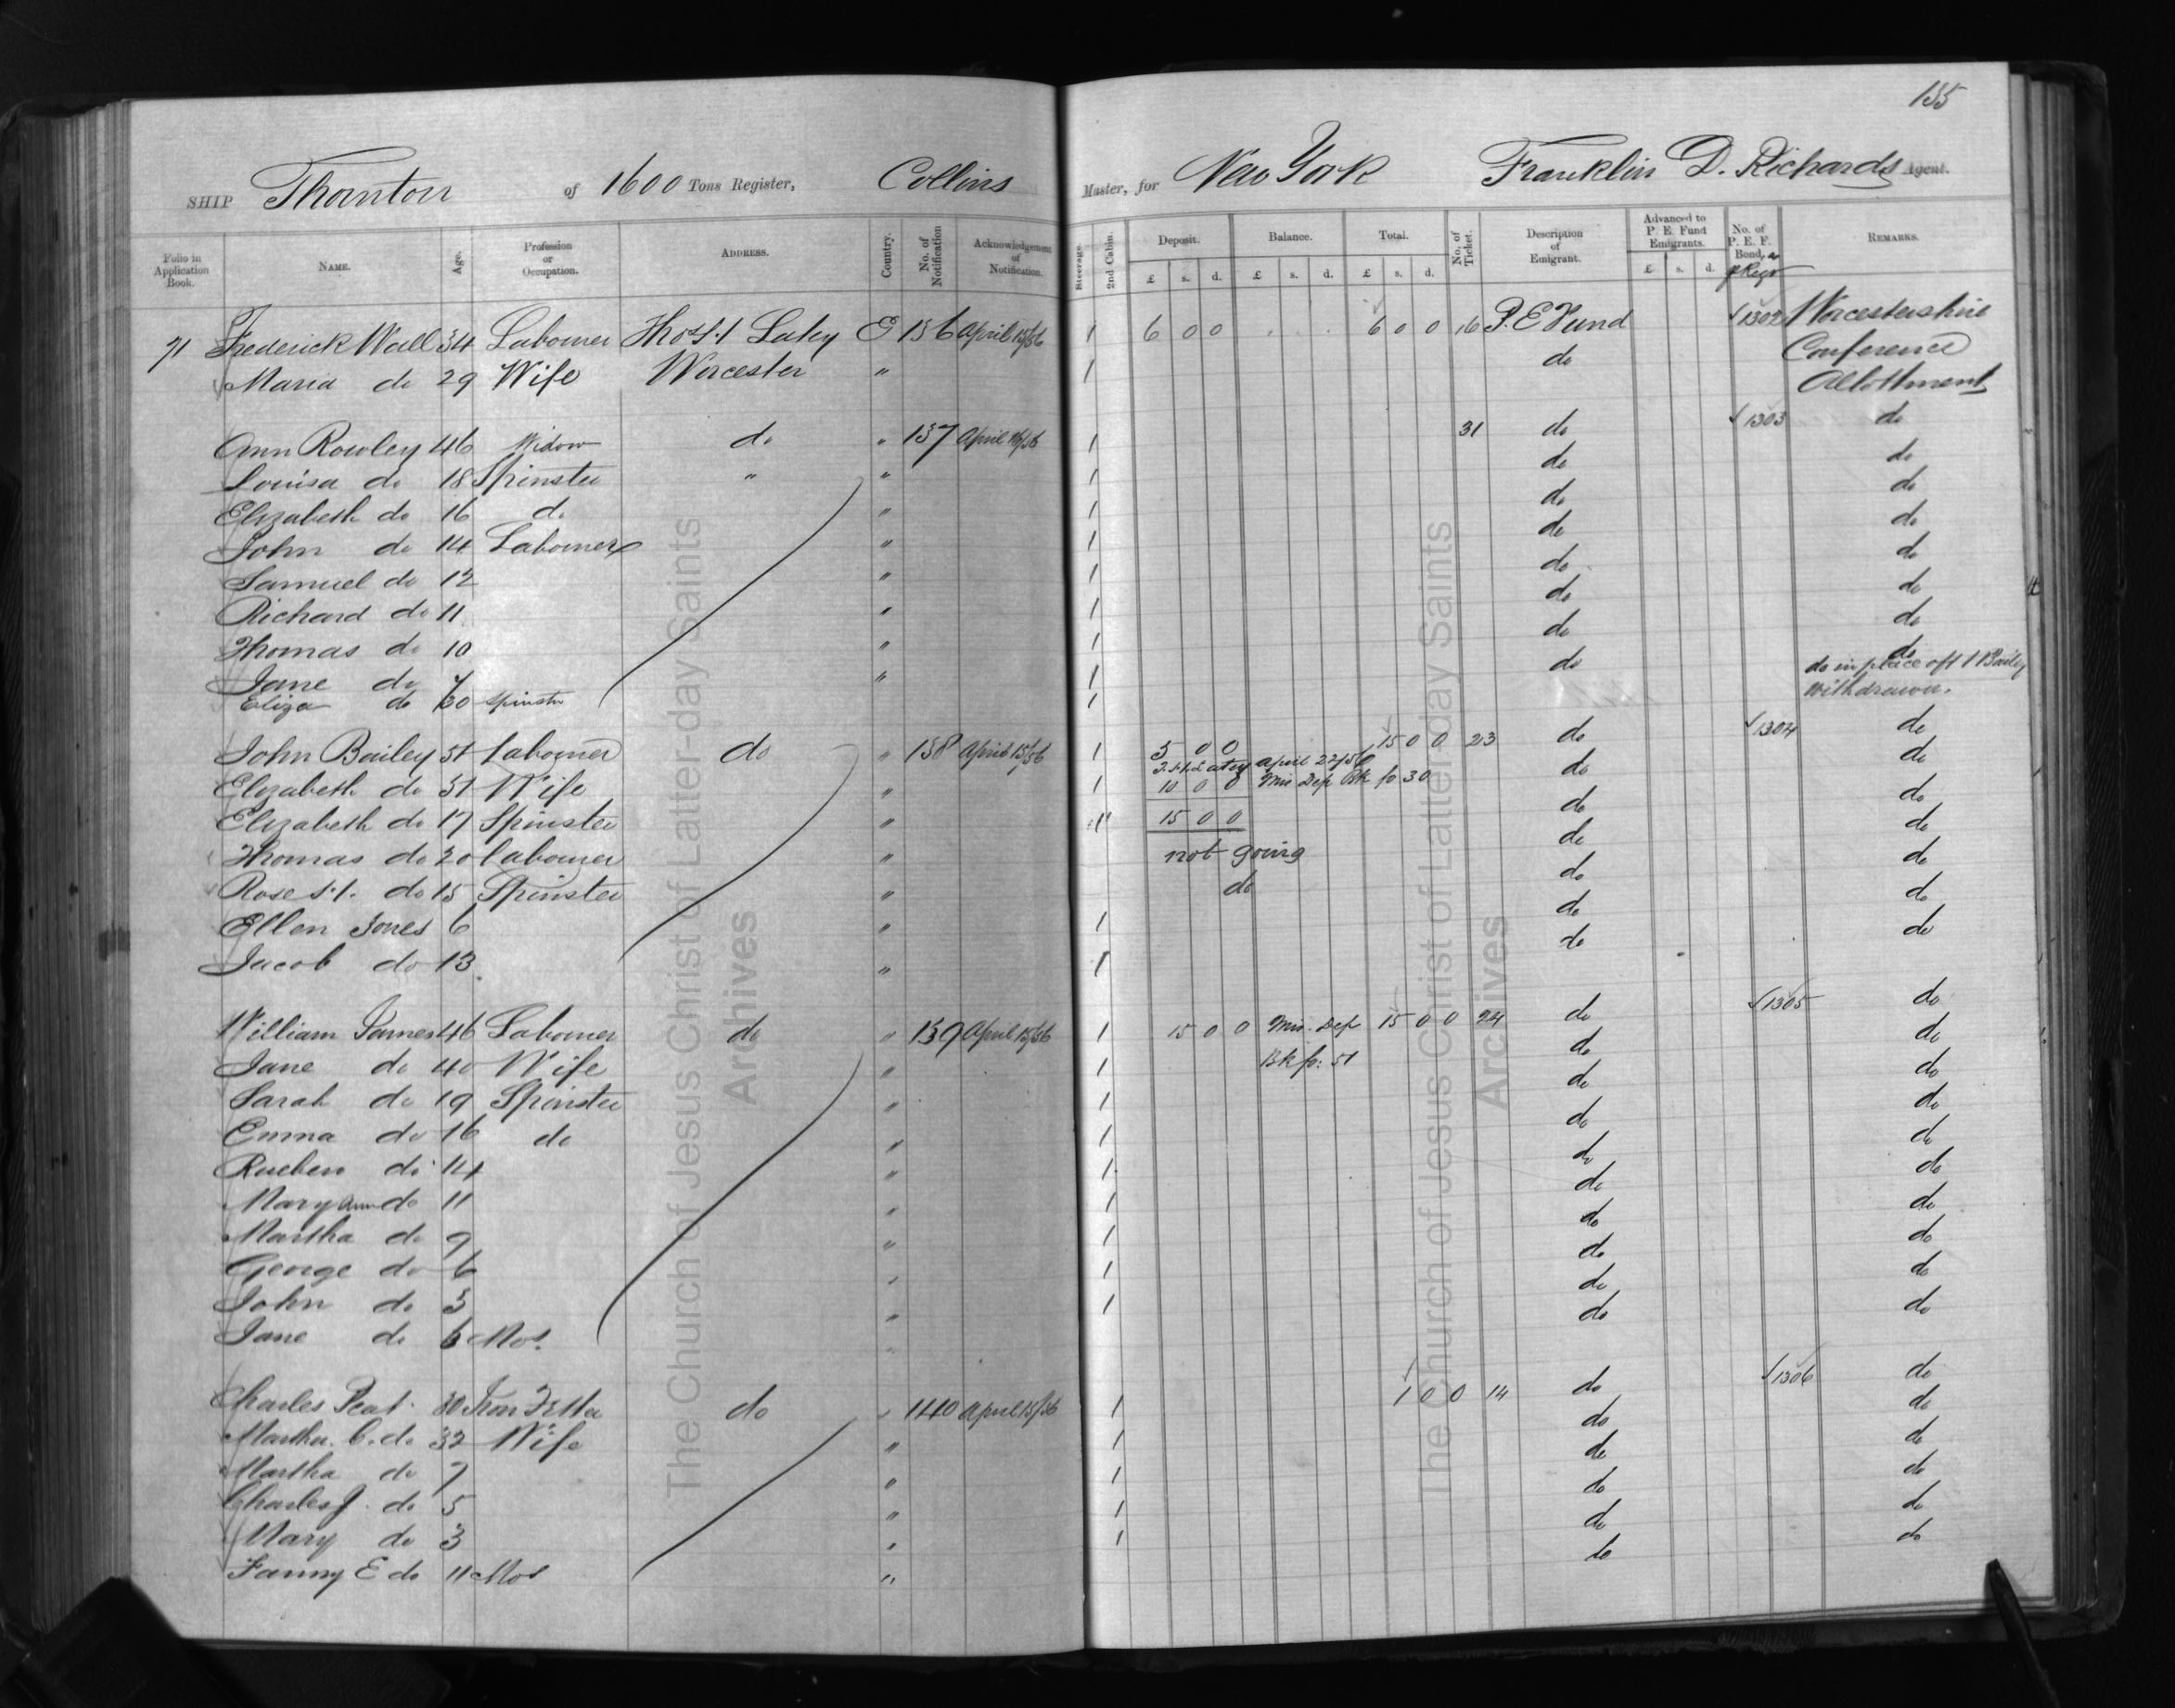 155
SHIP Thornton of 1600 Tons Register, Collins Master, for New York Franklin D. Richards Agent.
Folio in Application Book. NAME. Age. Profession or Occupation. ADDRESS. Country. No. of Notification Acknowledgement of Notification. Steerage. 2nd Cabin. Deposit. £ s. d. Balance. £ s. d. Total. £ s. d. No. of Ticket. Description of Emigrant. Advanced to P. E. Fund Emigrants. £ s. d. No. of P. E. F. Bond, REMARKS.
71 Frederick Wall 34 Labourer Thos. Laky E 136 April 15/56 1 6 0 0 6 0 0 16 P. E Fund 1302 Worcestershire
Maria do 29 Wife Worcester " 1 do Conference
Allottment
Ann Rowley 46 Widow do " 137 April 16/56 1 31 do 1303 do
Louisa do 18 Spinster " " 1 do do
Elizabeth do 16 do " 1 do do
John do 14 Labourer " 1 do do
Samuel do 12 " 1 do do
Richard do 11 " 1 do do
Thomas do 10 " 1 do do
Jane do 7 " 1 do do
Eliza do 60 Spinster 1 do in place of Bailey
withdrawn.
John Bailey 51 Labourer do " 138 April 15/56 1 5 0 0 15 0 0 23 do 1304 do
April 22/56
Elizabeth do 51 Wife " 1 10 0 0 Mis Dep Bk fo 30 do do
Elizabeth do 17 Spinster " 1 15 0 0 do do
Thomas do 20 Labourer " not going do do
Rose do 15 Spinster " do do do
Ellen Jones 6 " 1 do do
Jacob do 13 " 1 do do
William James 46 Labourer do " 139 April 15/56 1 15 0 0 Mis. Dep 15 0 0 24 do 1305 do
Jane do 40 Wife " 1 Bk fo: 51 do do
Sarah do 19 Spinster " 1 do do
Emma do 16 do " 1 do do
Rueben do 14 " 1 do do
Mary Ann do 11 " 1 do do
Martha do 9 " 1 do do
George do 6 " 1 do do
John do 3 " 1 do do
Jane do 6 Mos. " do do
Charles Peat 30 Iron do " 140 April 15/56 1 1 0 0 14 do 1306 do
Martha. C. do 32 Wife " 1 do do
Martha do 7 " 1 do do
Charles J. do 5 " 1 do do
Mary do 3 " 1 do do
Fanny E do 11 Mos " do do
The Church of Jesus Christ of Latter-day Saints
Archives
The Church of Jesus Christ of Latter-day Saints
Archives